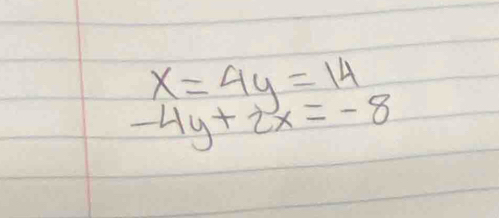 x = 4y = 14
-4y + 2x = -8